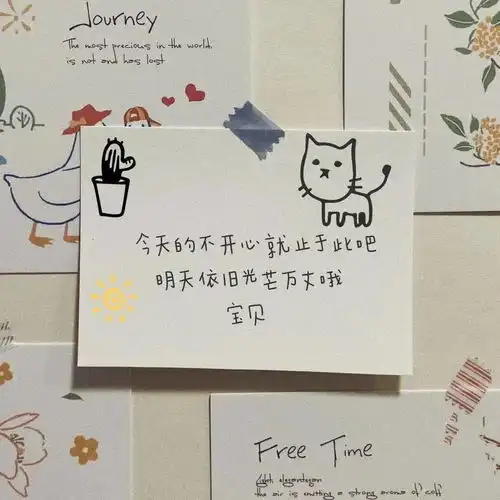 Journey
The most precious in the world,
is not and has lost
今天的不开心就止于此吧
明天依旧光芒万丈哦
宝贝
Free Time
the air is emitting a strong aroma of coff